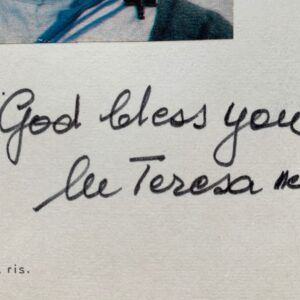 God bless you
lu Teresa mc
ris.